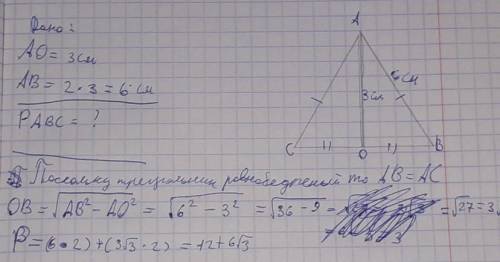 Дано:
AO = 3см
AB = 2 • 3 = 6 см
PABC = ?
A
6 см
3см
C
O
B
Поскольку треугольник равнобедренный то AB = AC
OB = √AB² - AO² = √6² - 3² = √36 - 9 = = √27 = 3
P = (6 • 2) + (3√3 • 2) = 12 + 6√3